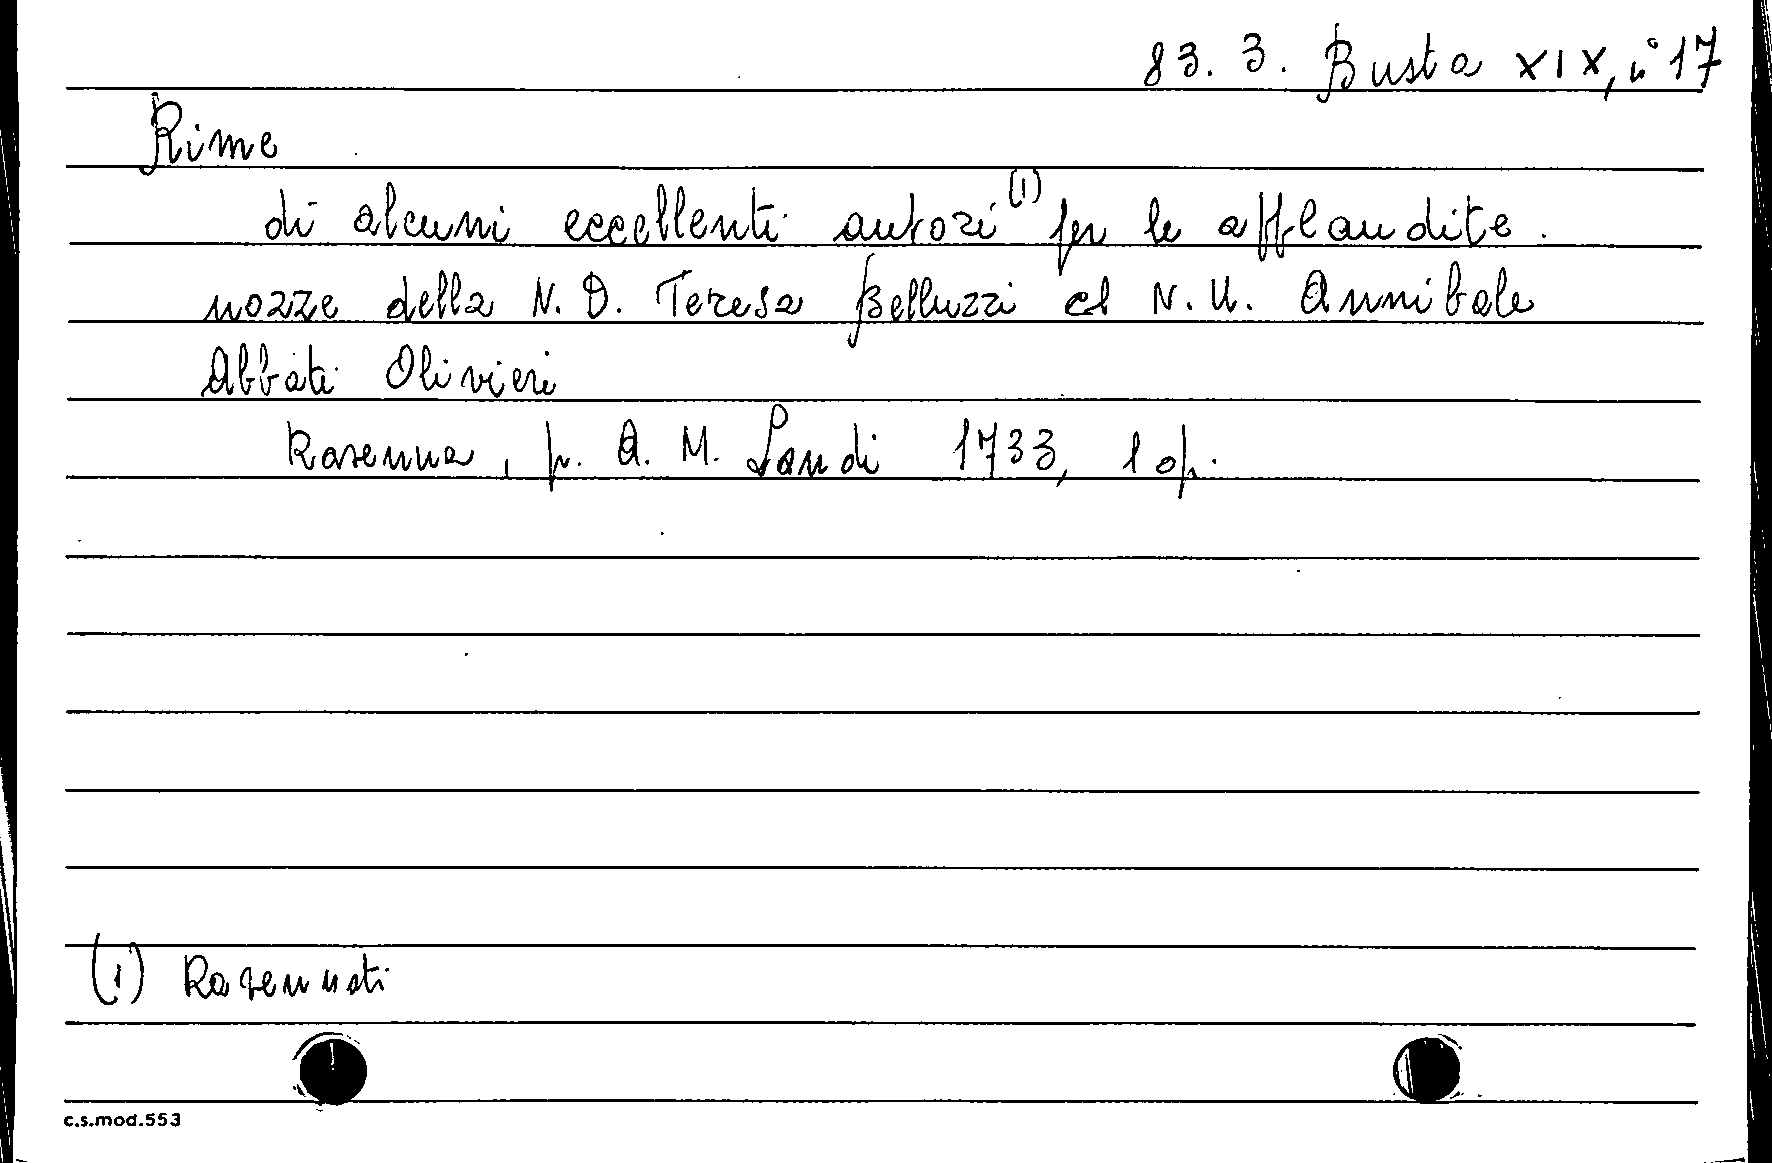 83. 3. Busta XIX, n° 17
Rime
di alcuni eccellenti autori (1) per le applaudite
nozze della N. D. Teresa Belluzzi el N. U. Annibale
Abbati Olivieri
Ravenna, p. A. M. Landi 1733, 1 op.
(1) Ravennati
c.s.mod.553